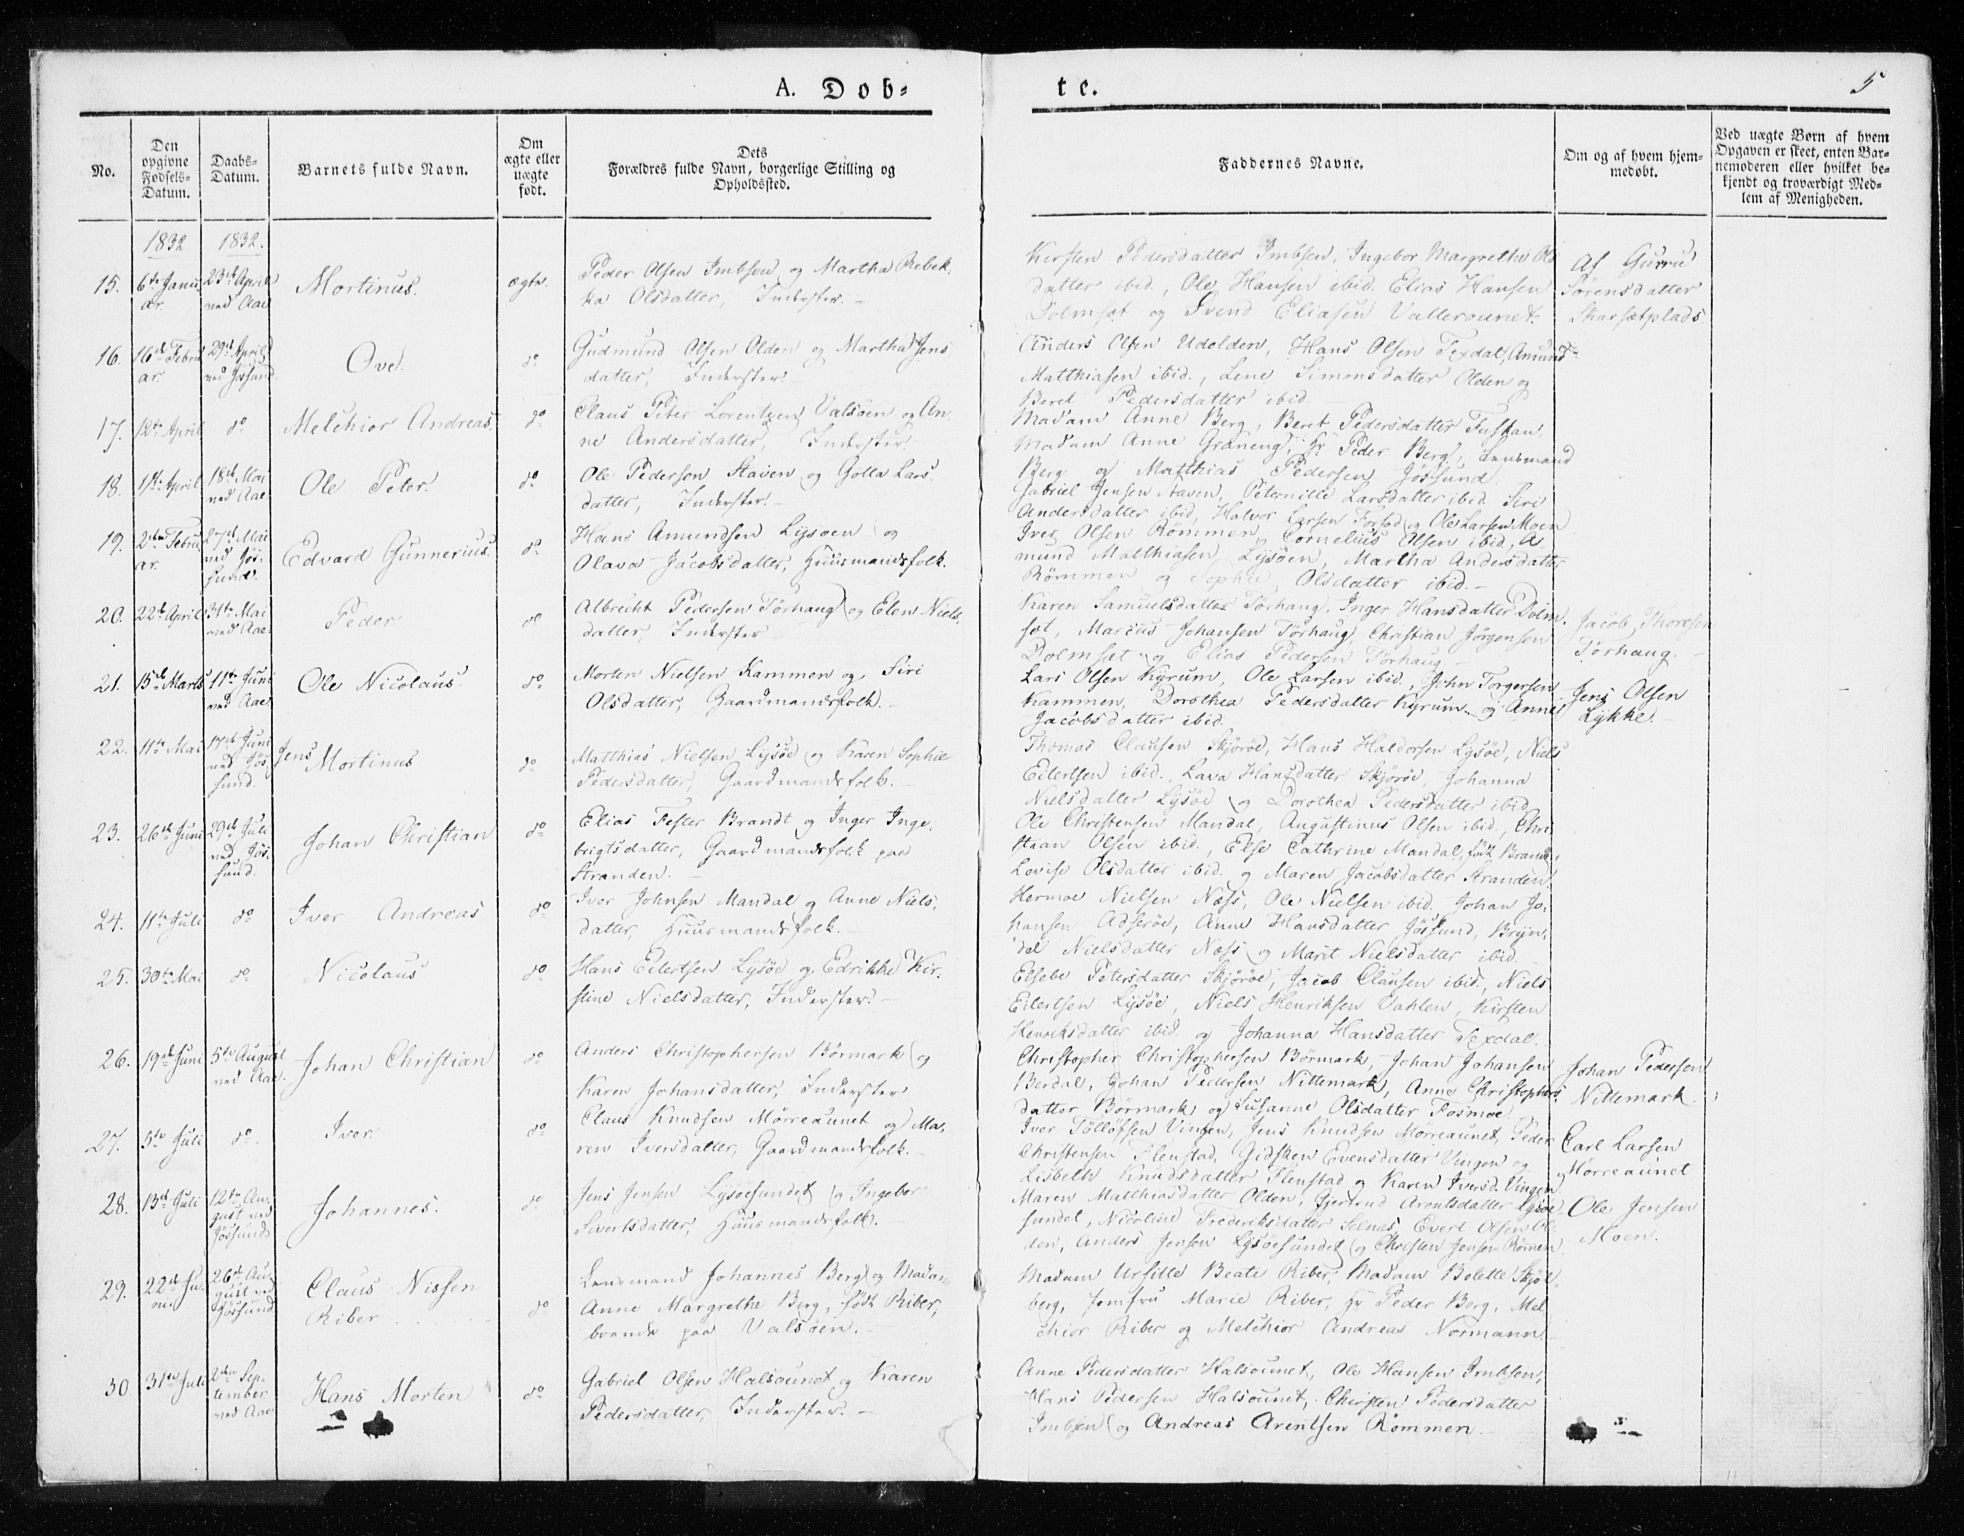 A. Døb-
te.
5
No.
Den opgivne Fødsels-Datum.
Daabs-Datum.
Barnets fulde Navn.
Om ægte eller uægte født.
Dets Forældres fulde Navn, borgerlige Stilling og Opholdssted.
Faddernes Navne.
Om og af hvem hjem-medøbt.
Ved uægte Børn af hvem Opgaven er skeet, enten Bar-nemoderen eller hvilket be-kjendt og troværdigt Med-lem af Menigheden.
1832 1832.
15. 6te Janu-ar. 23de April ved Aae Mortinus. ægte.
Peder Olsen Imbsen og Martha Rebek-
ka Olsdatter, Inderster. -
Kirsten Pedersdatter Imbsen, Ingebor Margrethe Ols
datter ibid., Ole Hansen ibid. Elias Hansen
Dolmset og Svend Eliasen Vallersunet.
Af Gurru
Sørensdatter
Skarsetplads
16. 16de Febru-ar. 29de April ved Jøssund Ove. do
Gudmund Olsen Olden og Martha Jens
datter, Inderster. -
Anders Olsen Udolden, Hans Olsen Texdal, Amund
Matthiasen ibid., Lene Simonsdatter Olden og
Beret Pedersdatter ibid
17. 12te April do Melchior Andreas. do
Claus Peter Lorentzen Valsøen og An-
ne Andersdatter, Inderster.
Madam Anne Berg, Beret Pedersdatter Fustan,
Madam Anne Graneng, Hr Peder Berg, Lensmand
Berg og Matthias Pedersen Jøssund.
18. 1ste April 18de Mai ved Aae. Ole Peter. do
Ole Pedersen Staven og Golla Lars
datter, Inderster. -
Gabriel Jensen Staven, Peternille Larsdatter ibid. Siri
Andersdatter ibid, Halvor Larsen Forsod og Ole Larsen Moen
19. 2den Febru-ar. 27de Mai ved Jøs-sund. Edvard Gunnerius. do
Hans Amundsen Lysøen og
Olava Jacobsdatter, Huusmandsfolk.
Iver Olsen Rømmen, Cornelius Olsen ibid, A-
mund Matthiasen Lysøen, Martha Andersdatter
Rømmen og Sophie Olsdatter ibid. -
20. 22de April 31te Mai ved Aae. Peder do
Albrecht Pedersen Tørhaug og Elen Niels
datter, Inderster -
Karen Samuelsdatter Tørhaug, Inger Hansdatter Dolm-
set, Marcus Johansen Tørhaug, Christian Jørgensen
Dolmset og Elias Pedersen Tørhaug
Jacob Thoresen
Tørhaug. -
21. 15de Marts 11te Juni ved Aae. Ole Nicolaus. do
Morten Nielsen Kammen og Siri
Olsdatter, Gaardmandsfolk. -
Lars Olsen Kyrum, Ole Larsen ibid., John Torgersen
Kammen, Dorothea Pedersdatter Kyrum og Anne
Jacobsdatter ibid.
Jens Olsen
Lykke. -
22. 11te Mai 17de Juni ved Jøs-sund. Jens Mortinus do
Matthias Nielsen Lysøe og Karen Sophie
Pedersdatter, Gaardmandsfolk. -
Thomas Clausen Skjørøe, Hans Haldorsen Lysøe, Niels
Eilertsen ibid., Lava Hansdatter Skjørøe, Johanna
Nielsdatter Lysøe og Dorothea Pedersdatter ibid
23. 26de Juni 29de Juli ved Jøs-sund. Johan Christian do
Elias Fester Brandt og Inger Inge-
brigtsdatter, Gaardmandsfolk paa
Stranden. -
Ole Christensen Mandal, Augustinus Olsen ibid., Chri-
stian Olsen ibid., Else Cathrine Mandal, født Brandt,
Lovise Olsdatter ibid. og Maren Jacobsdatter Stranden.
24. 11te Juli do Iver Andreas do
Iver Johnsen Mandal og Anne Niels-
datter, Huusmandsfolk. -
Hermoe Nielsen Næss, Ole Nielsen ibid. Johan Jo-
hansen Adserøe, Anne Hansdatter Jøssund, Bryn-
del Nielsdatter Næss og Marit Nielsdatter ibid.
25. 30te Mai do Nicolaus do
Hans Eilertsen Lysøe og Edrikke Kir-
stine Nielsdatter, Inderster. -
Elsebe Petersdatter Skjørøe, Jacob Clausen ibid., Niels
Eilertsen Lysøe, Niels Henriksen Vahlen, Kirsten
Henriksdatter ibid. og Johanna Hansdatter Texdal. -
26. 19de Juni 5te August ved Aae. Johan Christian do
Anders Christophersen Børmark og
Karen Johansdatter, Inderster
Christopher Christophersen Børmark, Johan Johansen
Berdal, Johan Pedersen Nittemark, Anne Christophers
datter Børmark og Susanne Olsdatter Fosmoe.
Johan Pedersen
Nittemark.
27. 5te Juli do. Iver. do
Claus Knudsen Mørreaunet og Ma-
ren Iversdatter, Gaardmandsfolk. -
Iver Tølløfsen Vingen, Jens Knudsen Mørreaunet, Peder
Christensen Flenstad, Gidsken Evensdatter Vingen og
Lisbeth Knudsdatter Flenstad og Karen Iversd. Vingen
Carl Larsen
Mørreaunet
28. 13de Juli 12te Au-gust ved Jøssund Johannes. do
Jens Jensen Lysøesundet og Ingebor
Sivertsdatter, Huusmandsfolk. -
Maren Matthiasdatter Olden, Gjertrud Arentsdatter Lysøe
sundet, Nicoline Frederiksdatter Selnes, Evert Olsen Ol-
den, Anders Jensen Lysøesundet og Chresten Jensen Rømen
Ole Jensen
Moen.
29. 22de Ju-ni 26de Au-gust ved Jøssund Claus Nissen Riber do
Lensmand Johannes Berg og Madam
Anne Margrethe Berg, født Riber,
boende paa Valsøen. -
Madam Ursille Beate Riber, Madam Bolette Skjøl-
berg, Jomfru Marie Riber, Hr Peder Berg, Mel-
chior Riber og Melchior Andreas Normann.
30 31te Juli 2den Sep-tember ved Aae Hans Morten do
Gabriel Olsen Halsounet og Karen
Pedersdatter, Inderster. -
Anne Pedersdatter Halsounet, Ole Hansen Imbsen,
Hans Pedersen Halsounet, Chirsten Pedersdatter
Imbsen og Andreas Arentsen Rømmen. -